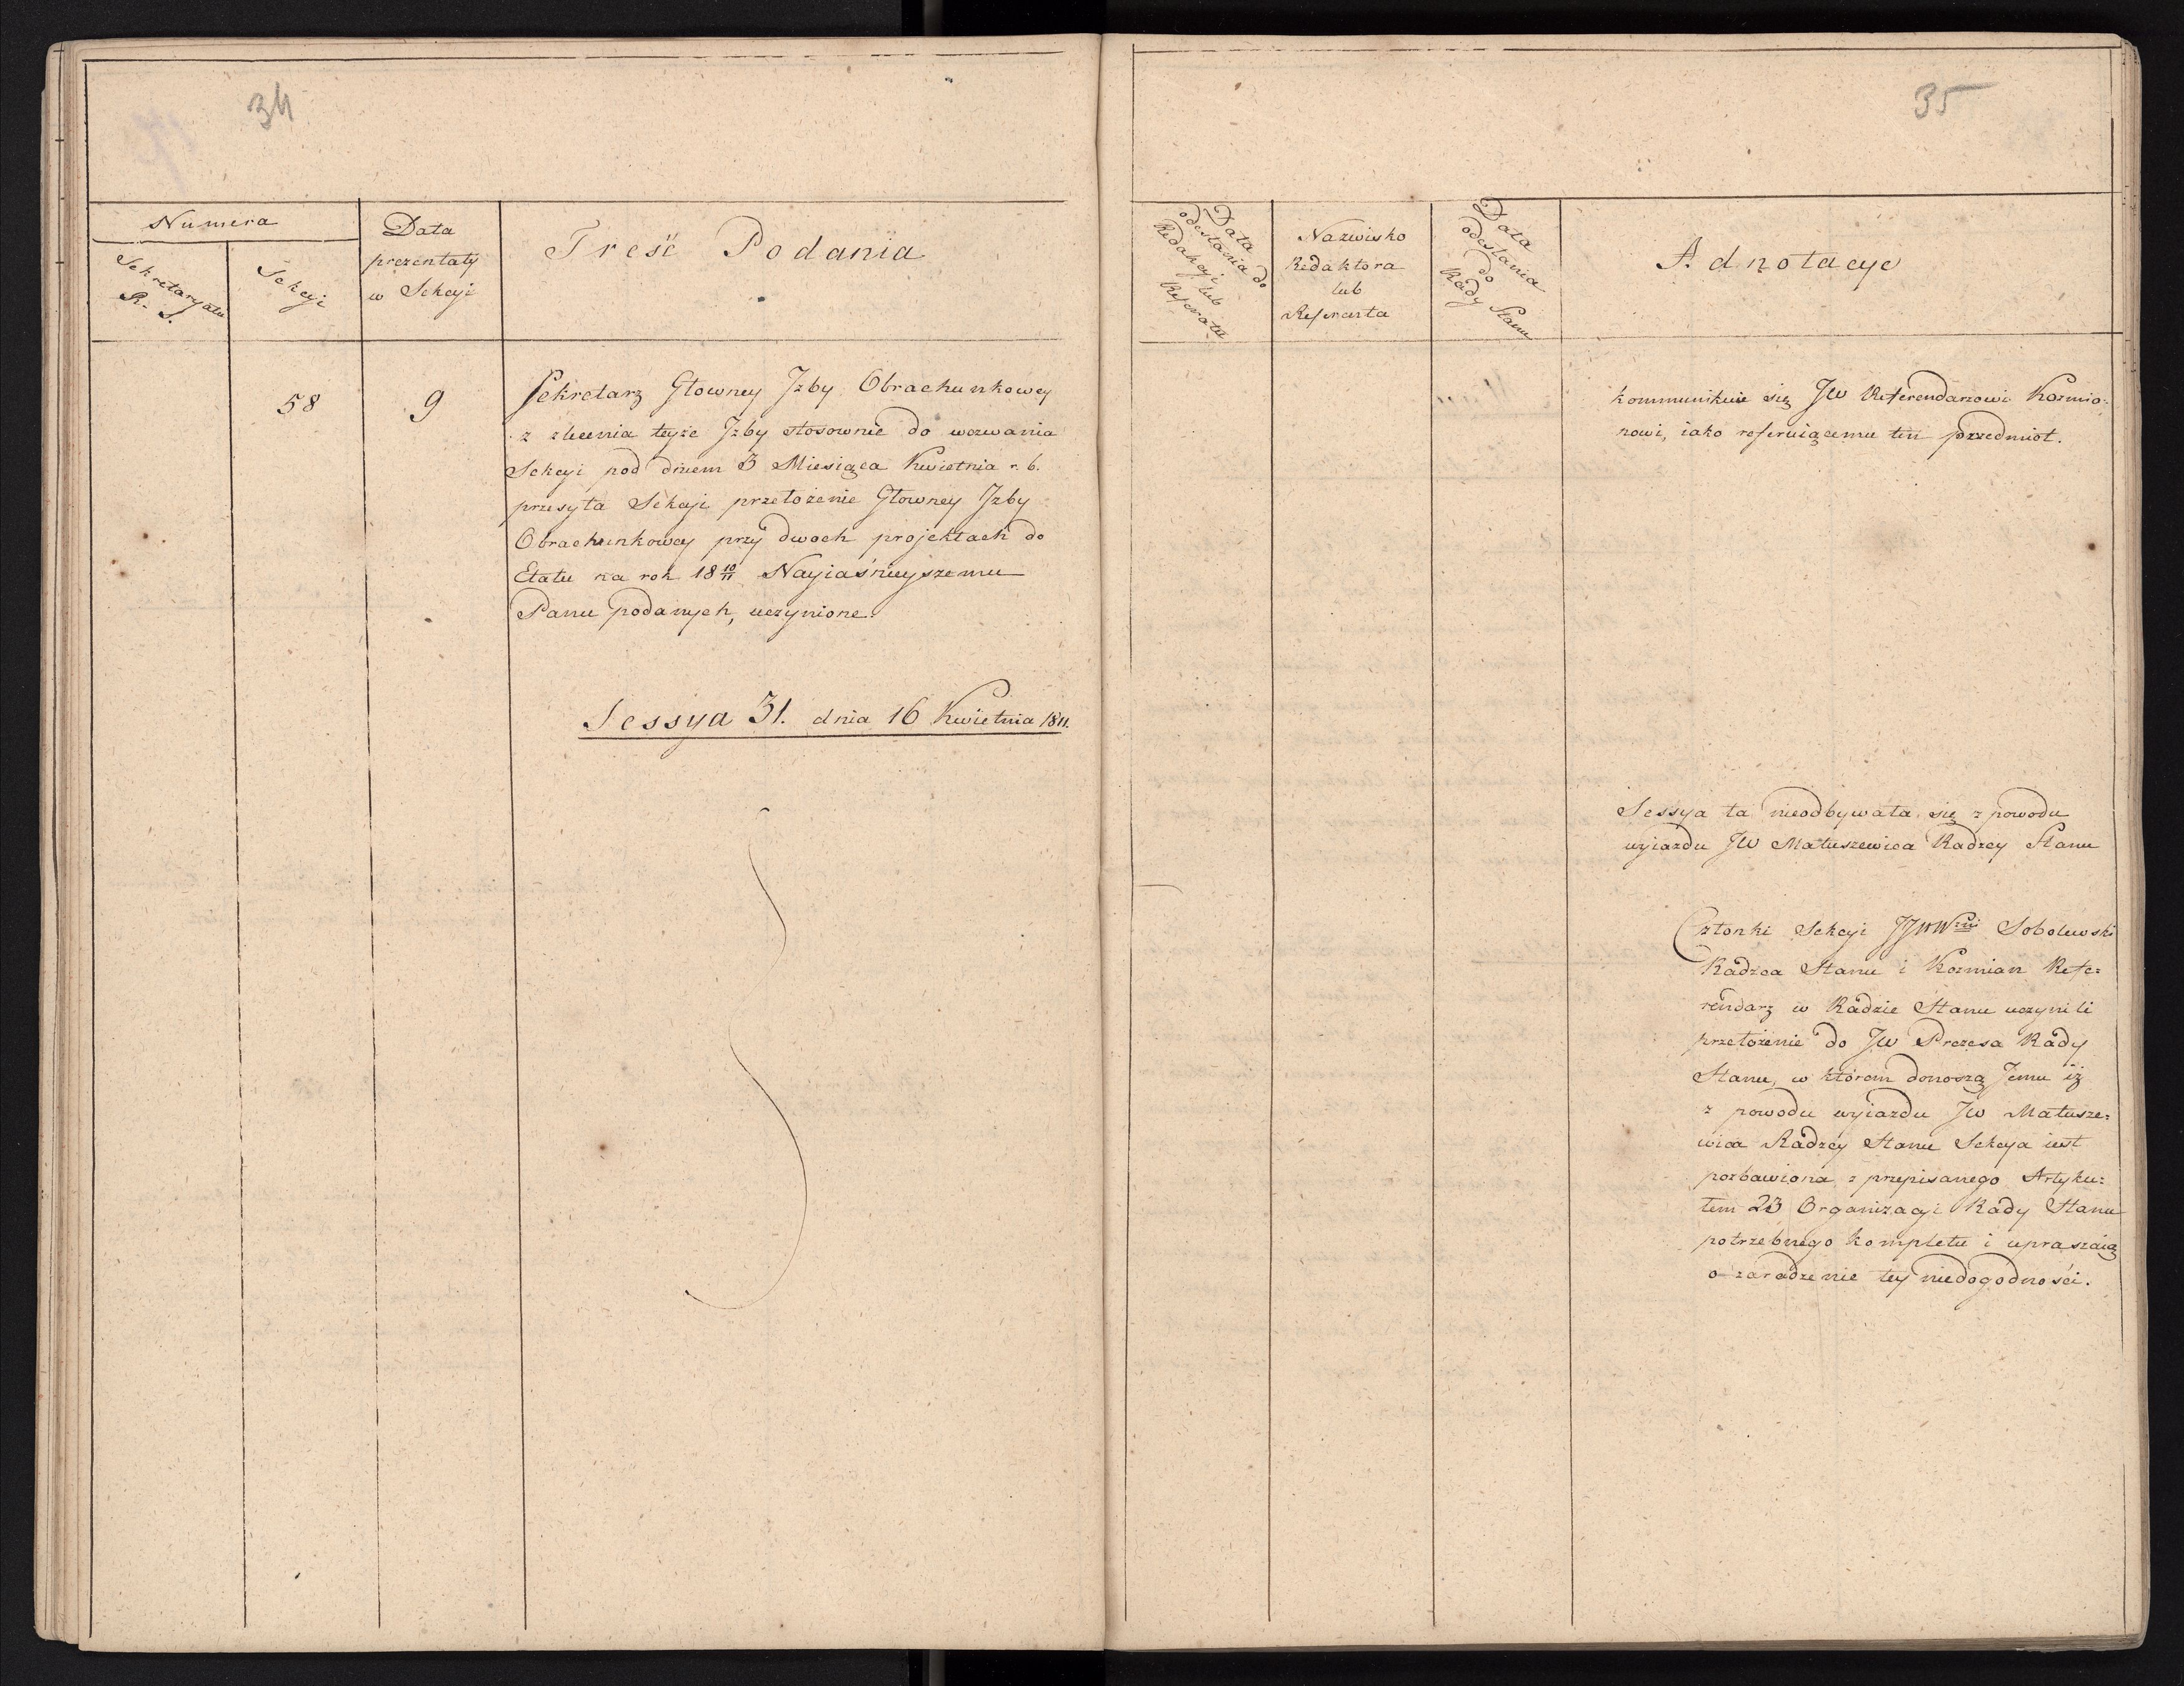 34
Numera
Sekretaryatu
R. S.
Sekcyi
Data
prezentaty
w Sekcyi
Treść Podania
58
9
Sekretarz Głowney Jzby Obrachunkowey
z zlecenia teyże Jzby stosownie do wezwania
Sekcyi pod dniem 3 Miesiąca Kwietnia r. b.
przesyła Sekcyi przełożenie Głowney Jzby
Obrachunkowey przy dwoch projektach do
Etatu na rok 18 10/11 Nayiaśnieyszemu
Panu podanych, uczynione.
Sessya 31. dnia 16 Kwietnia 1811.
35
Data
odesłania do
Redakcyi lub
Referatu
Nazwisko
Redaktora
lub
Referenta
Data
odesłania
do
Rady Stanu
Adnotacye
kommunikuie się JW Referendarzowi Kozmio=
nowi, iako referuiącemu ten przedmiot.
Sessya ta nieodbywała się z powodu
wyiazdu JW Matuszewica Radzcy Stanu
Członki Sekcyi JJWW Sobolewski
Radzca Stanu i Kozmian Refe=
rendarz w Radzie Stanu uczynili
przełożenie do JW Prezesa Rady
Stanu, w którem donoszą Jemu iż
z powodu wyiazdu JW Matusze=
wica Radzcy Stanu Sekcya iest
pozbawiona z przepisanego Artyku=
łem 23 Organizacyi Rady Stanu
potrzebnego kompletu i upraszaią
o zaradzenie tey niedogodności.